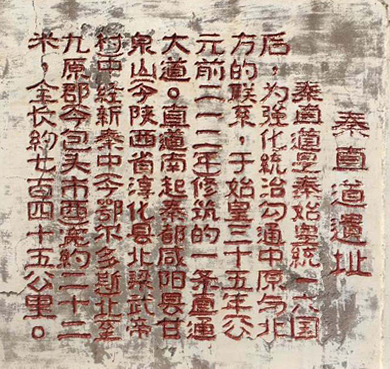 秦直道遺址
秦直道是秦始皇統一六国
后，为強化統治勾通中原与北
方的联系，于始皇三十五年公
元前二一二年修筑的一条直通
大道。直道南起秦都咸阳县甘
泉山今陕西省淳化县北梁武帝
村中经新秦中今鄂尔多斯北至
九原郡今包头市西宽約二十二
米，全长約七百四十五公里。